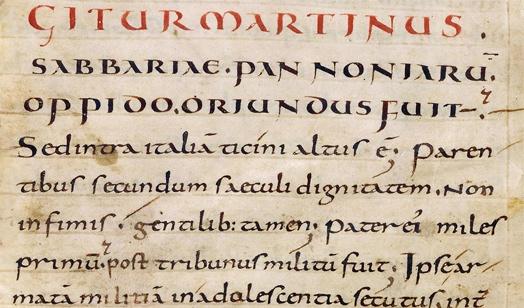 GITUR MARTINUS.
SABBARIAE. PANNONIARŪ.
OPPIDO. ORIUNDUS FUIT.
Sed intra italiā ticini altus ē. Paren
tibus secundum saeculi dignitatem. Non
infimis. gentilib: tamen. Pater ei miles
primū. post tribunus militū fuit. Ipse ar
matā militiā in adolescentia secutus. int̄